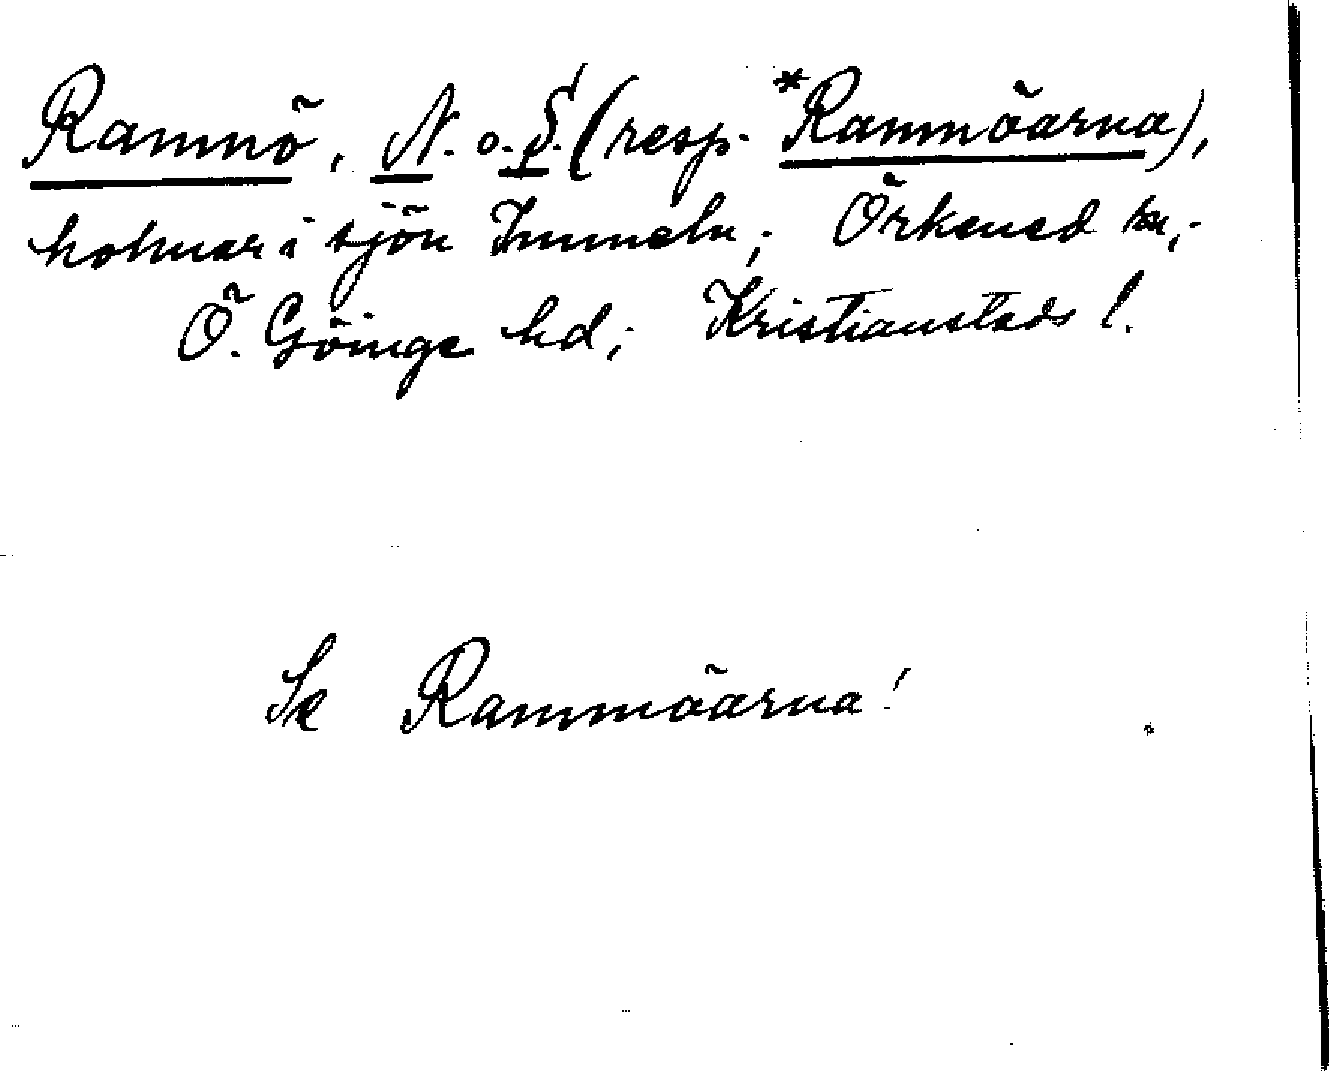 Ramnö, N. o. S. (resp. *Ramnöarna),
holmar i sjön Immeln; Örkened sn;
Ö. Göinge hd; Kristianstads l.
Se Ramnöarna!